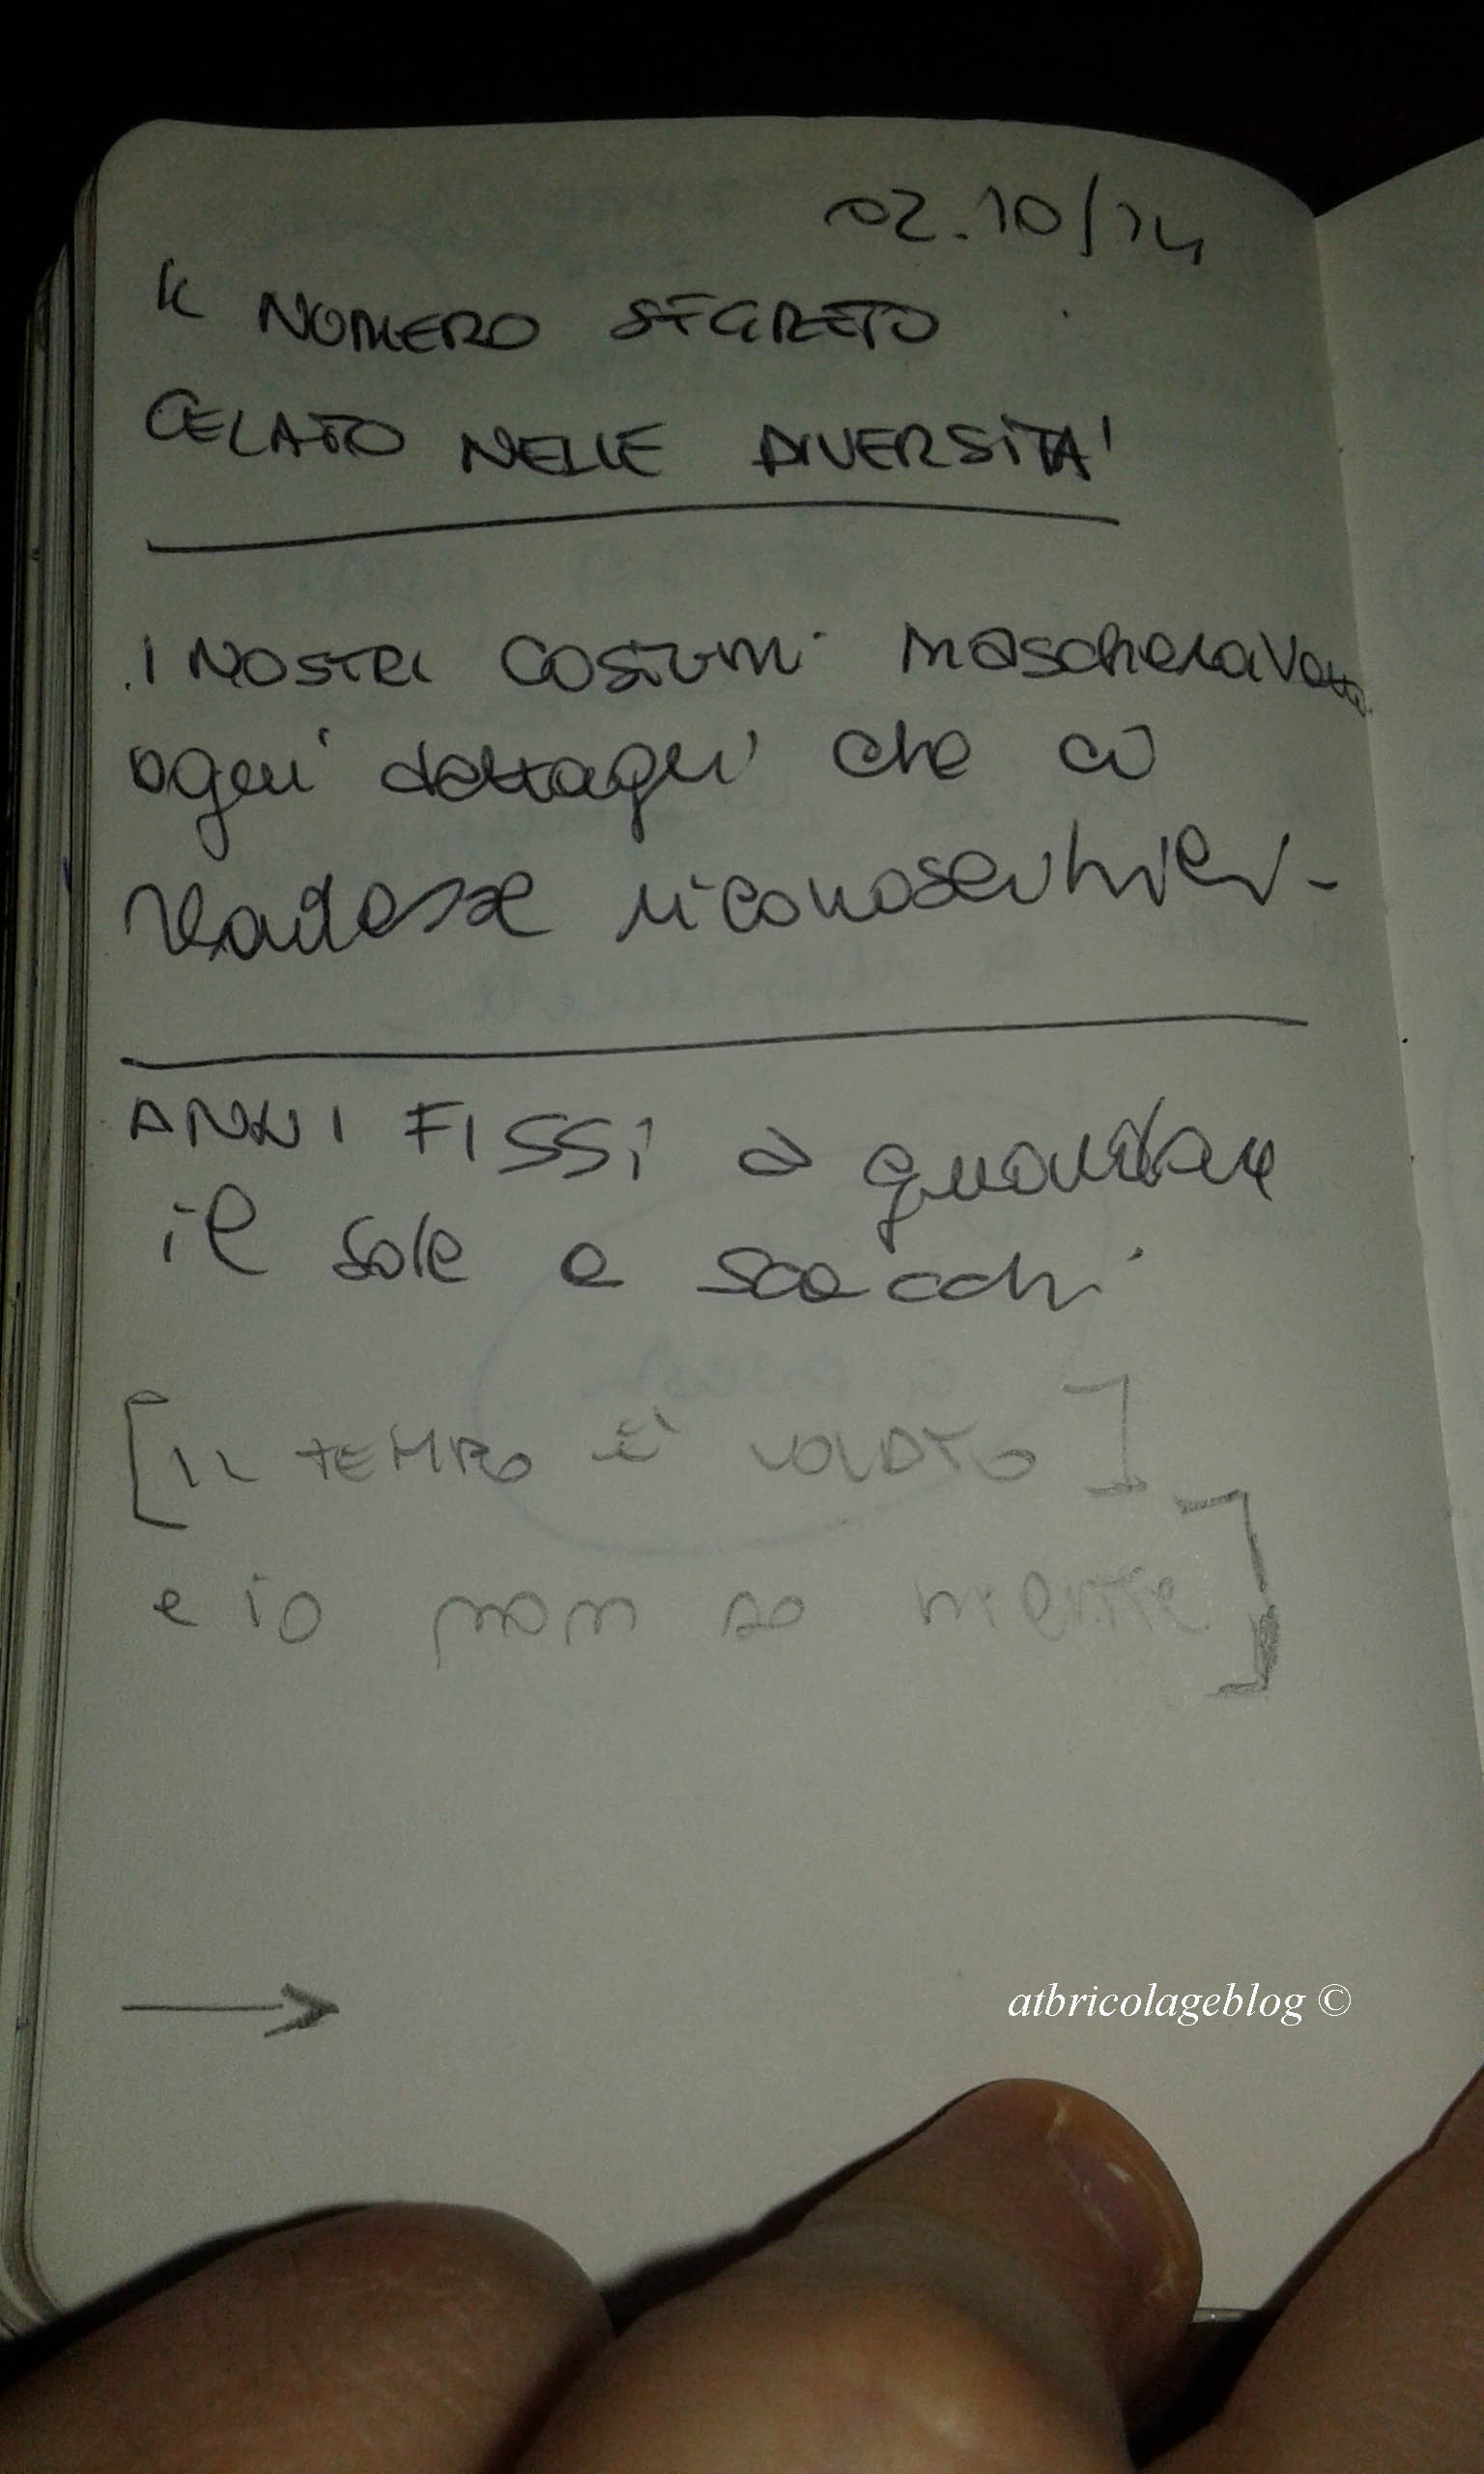 02.10/14
IL NUMERO SEGRETO
CELATO NELLE DIVERSITA'
I NOSTRI COSTUMI mascheravano
ogni dettagli che ci
rendesse riconoscibili-
ANNI FISSI a guardare
il sole a scacchi
[IL TEMPO è VOLATO]
e io non so niente]
atbricolageblog ©